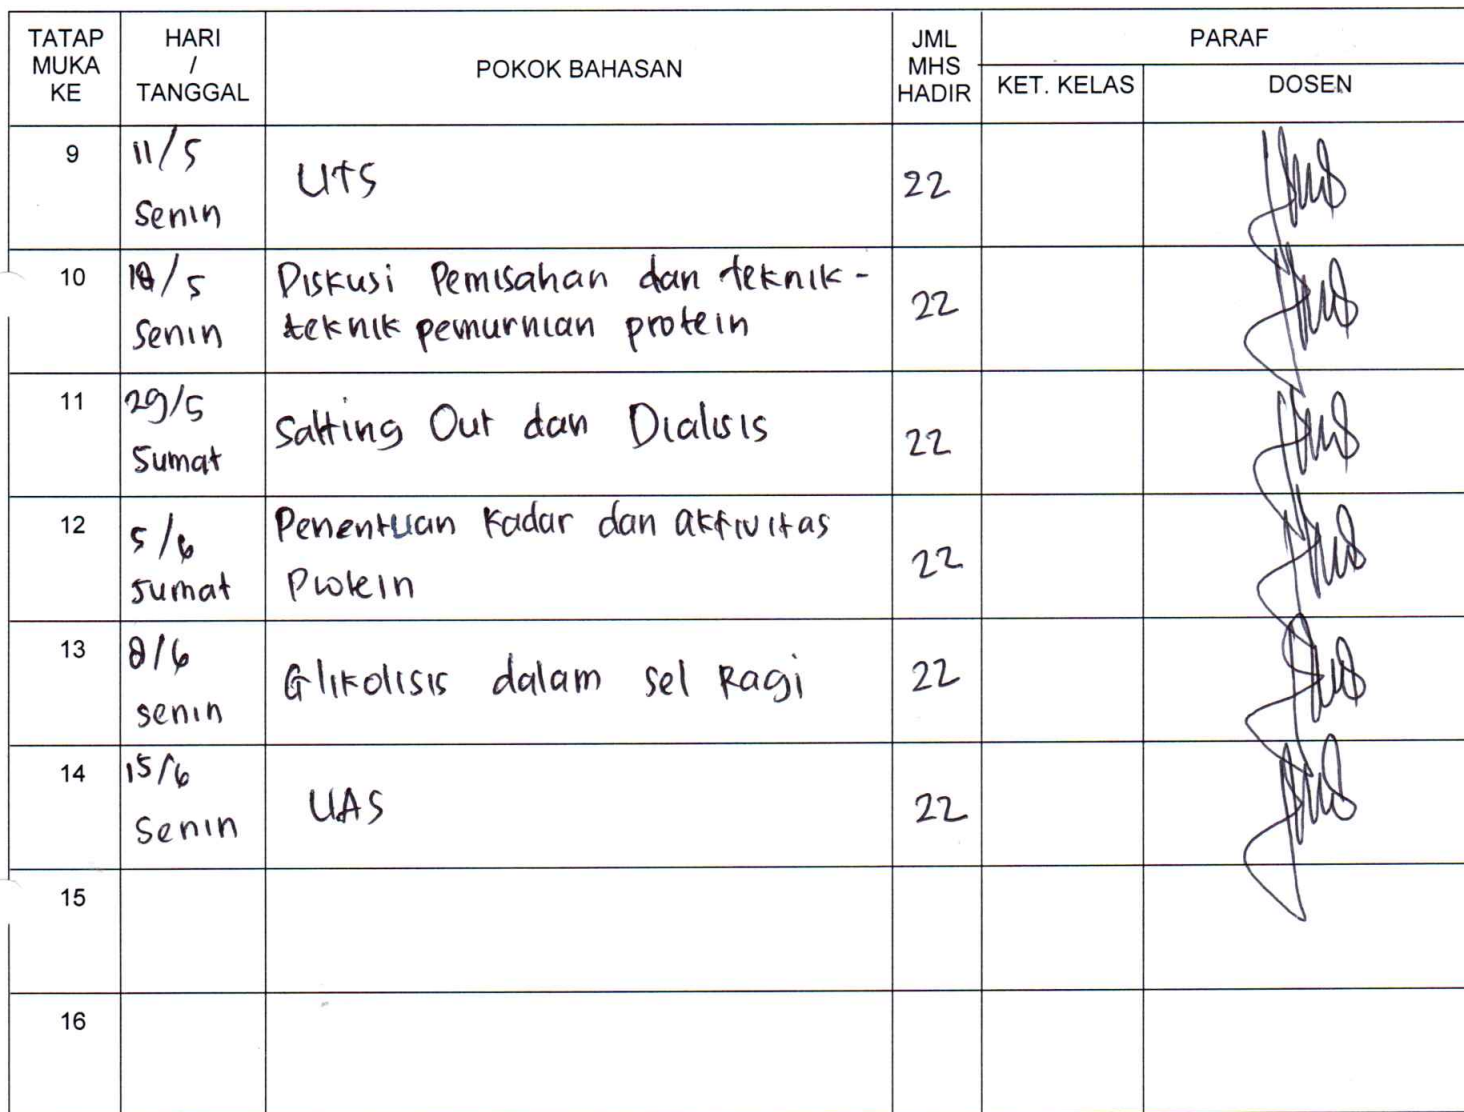 TATAP MUKA KE
HARI / TANGGAL
POKOK BAHASAN
JML MHS HADIR
PARAF
KET. KELAS
DOSEN
9
11/5
Senin
UTS
22
10
18/5
Senin
Diskusi Pemisahan dan teknik-
teknik pemurnian protein
22
11
29/5
Jumat
Salting Out dan Dialisis
22
12
5/6
Jumat
Penentuan Kadar dan aktivitas
Protein
22
13
8/6
senin
Glikolisis dalam sel Ragi
22
14
15/6
Senin
UAS
22
15
16